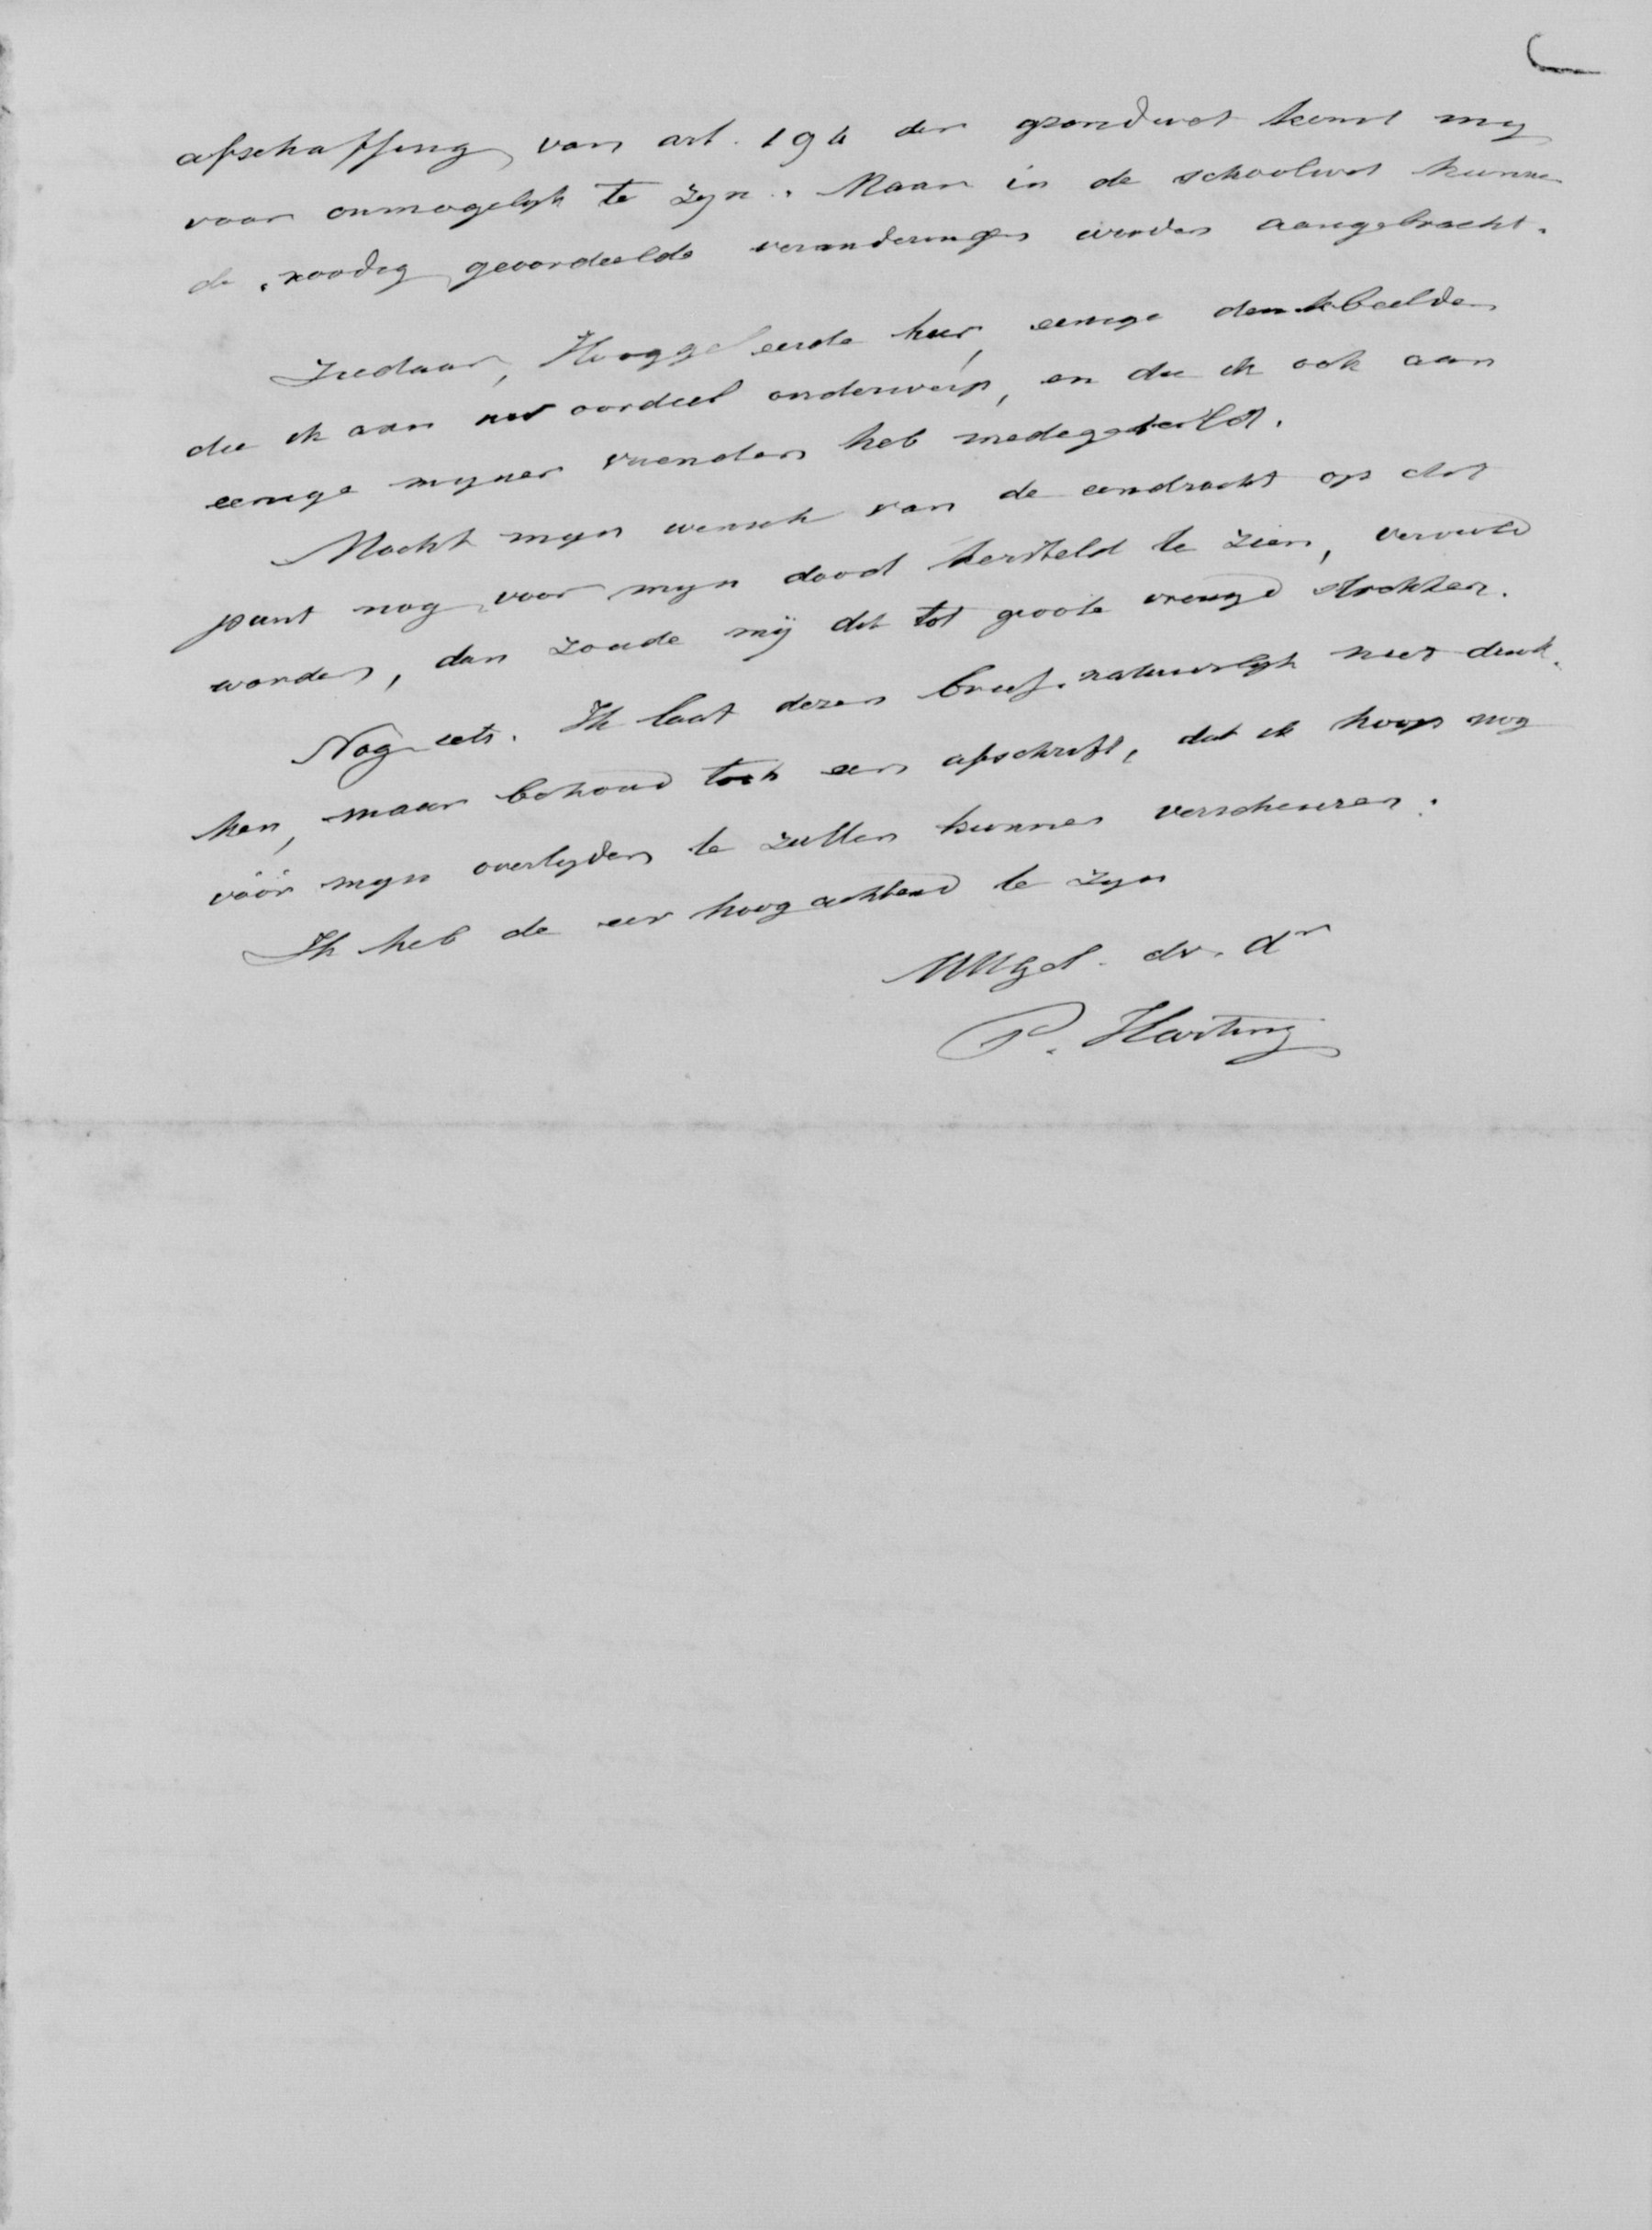 afschaffing van art. 194 der grondwet komt my
voor onmogelyk te zyn. Maar in de schoolwet kunnen
de noodig geoordeelde veranderingen worden aangebracht.
Ziedaar, Hooggeleerde heer, eenige denkbeelden
die ik aan uw oordeel onderwerp, en die ik ook aan
eenige myner vrienden heb medegedeeld.
Mocht myn wensch van de eendracht op dit
punt nog voor myn dood hersteld te zien, vervuld
worden, dan zoude mij dit tot groote vreugd strekken.
Nog iets. Ik laat dezen brief natuurlyk niet druk-
ken, maar behoud toch een afschrift, dat ik hoop nog
vóór myn overlyden te zullen kunnen verscheuren.
Ik heb de eer hoogachtend te zyn
UWEgel. dv. dr
P. Harting